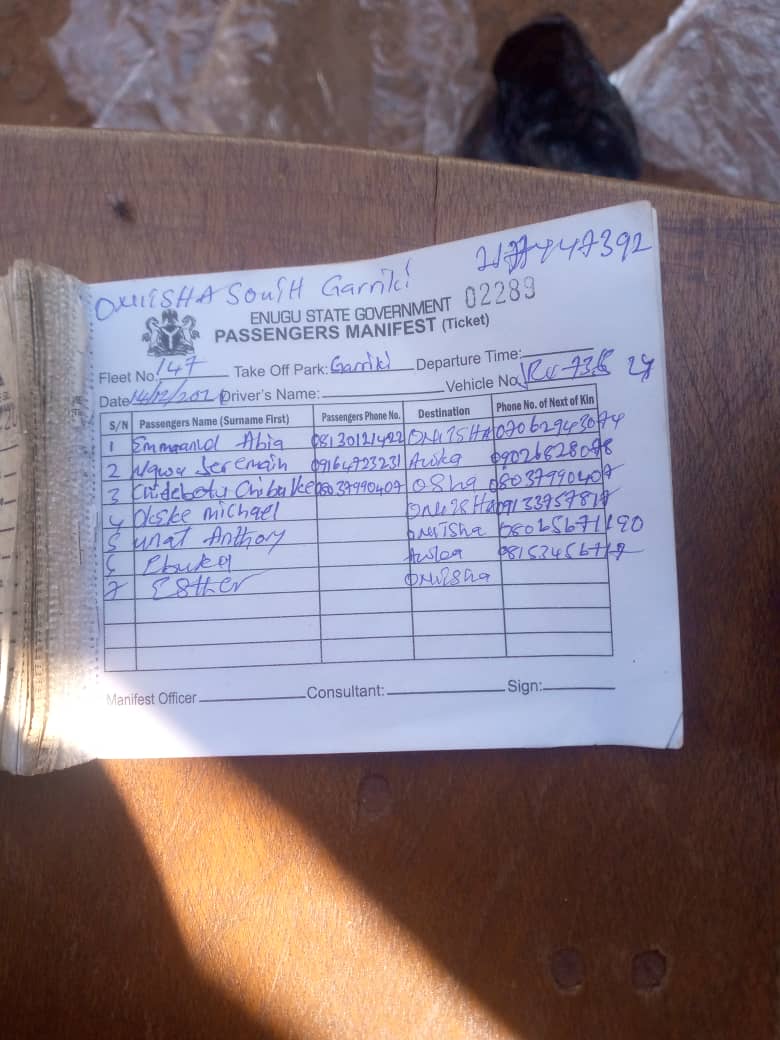 ONITSHA SOUTH Garriki
02289
ENUGU STATE GOVERNMENT
PASSENGERS MANIFEST (Ticket)
Fleet No: 147 Take Off Park: Garriki Departure Time:
Date Driver's Name: Vehicle No
S/N Passengers Name (Surname First) Passengers Phone No. Destination Phone No. of Next of Kin
1 Emmanuel Abia 08130121422 ONITSHA 07062943074
2 Jeremain 09164723231 Awka 09026828078
3 08037990407 Osha 08037990407
4 Okeke michael ONITSHA 09133757817
5 Anthony onitsha 08065671190
6 Ebuka Awka
7 Esther Onitsha
Manifest Officer Consultant: Sign: